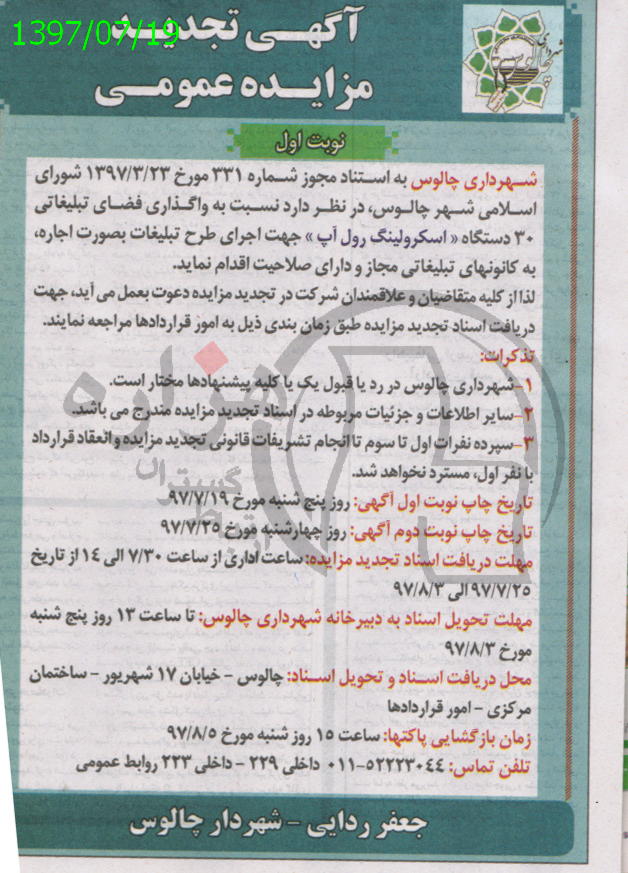 1397/07/19
آگهـی تجدیـد
مزایـده عمومـی
شهرداری چالوس
نوبت اول
شـهرداری چالوس به اسـتناد مجوز شـماره ۳۳۱ مورخ ۱۳۹۷/۳/۲۳ شورای
اسـلامی شـهر چالـوس، در نظـر دارد نسـبت به واگـذاری فضـای تبلیغاتی
۳۰ دستگاه « اسکرولینگ رول آپ » جهت اجرای طرح تبلیغات بصورت اجاره،
به کانونهای تبلیغاتی مجاز و دارای صلاحیت اقدام نماید.
لذا از کلیه متقاضیان و علاقمندان شرکت در تجدید مزایده دعوت بعمل می آید، جهت
دریافت اسناد تجدید مزایده طبق زمان بندی ذیل به امور قراردادها مراجعه نمایند.
تذکرات:
۱-شهرداری چالوس در رد یا قبول یک یا کلیه پیشنهادها مختار است.
۲-سایر اطلاعات و جزئیات مربوطه در اسناد تجدید مزایده مندرج می باشد.
۳-سپرده نفرات اول تا سوم تا انجام تشریفات قانونی تجدید مزایده و انعقاد قرارداد
با نفر اول، مسترد نخواهد شد.
تاریخ چاپ نوبت اول آگهی: روز پنج شنبه مورخ ۹۷/۷/۱۹
تاریخ چاپ نوبت دوم آگهی: روز چهارشنبه مورخ ۹۷/۷/۲۵
مهلت دریافت اسناد تجدید مزایده: ساعت اداری از ساعت ۷/۳۰ الی ۱۴ از تاریخ
۹۷/۷/۲۵ الی ۹۷/۸/۳
مهلت تحویل اسناد به دبیرخانه شهرداری چالوس: تا ساعت ۱۳ روز پنج شنبه
مورخ ۹۷/۸/۳
محل دریافت اسـناد و تحویل اسـناد: چالوس - خیابان ۱۷ شهریور - ساختمان
مرکزی - امور قراردادها
زمان بازگشایی پاکتها: ساعت ۱۵ روز شنبه مورخ ۹۷/۸/۵
تلفن تماس: ۵۲۲۲۳۰۴۴-۰۱۱ داخلی ۲۲۹ - داخلی ۲۲۳ روابط عمومی
جعفر ردایی - شهردار چالوس
هزاره
گستران